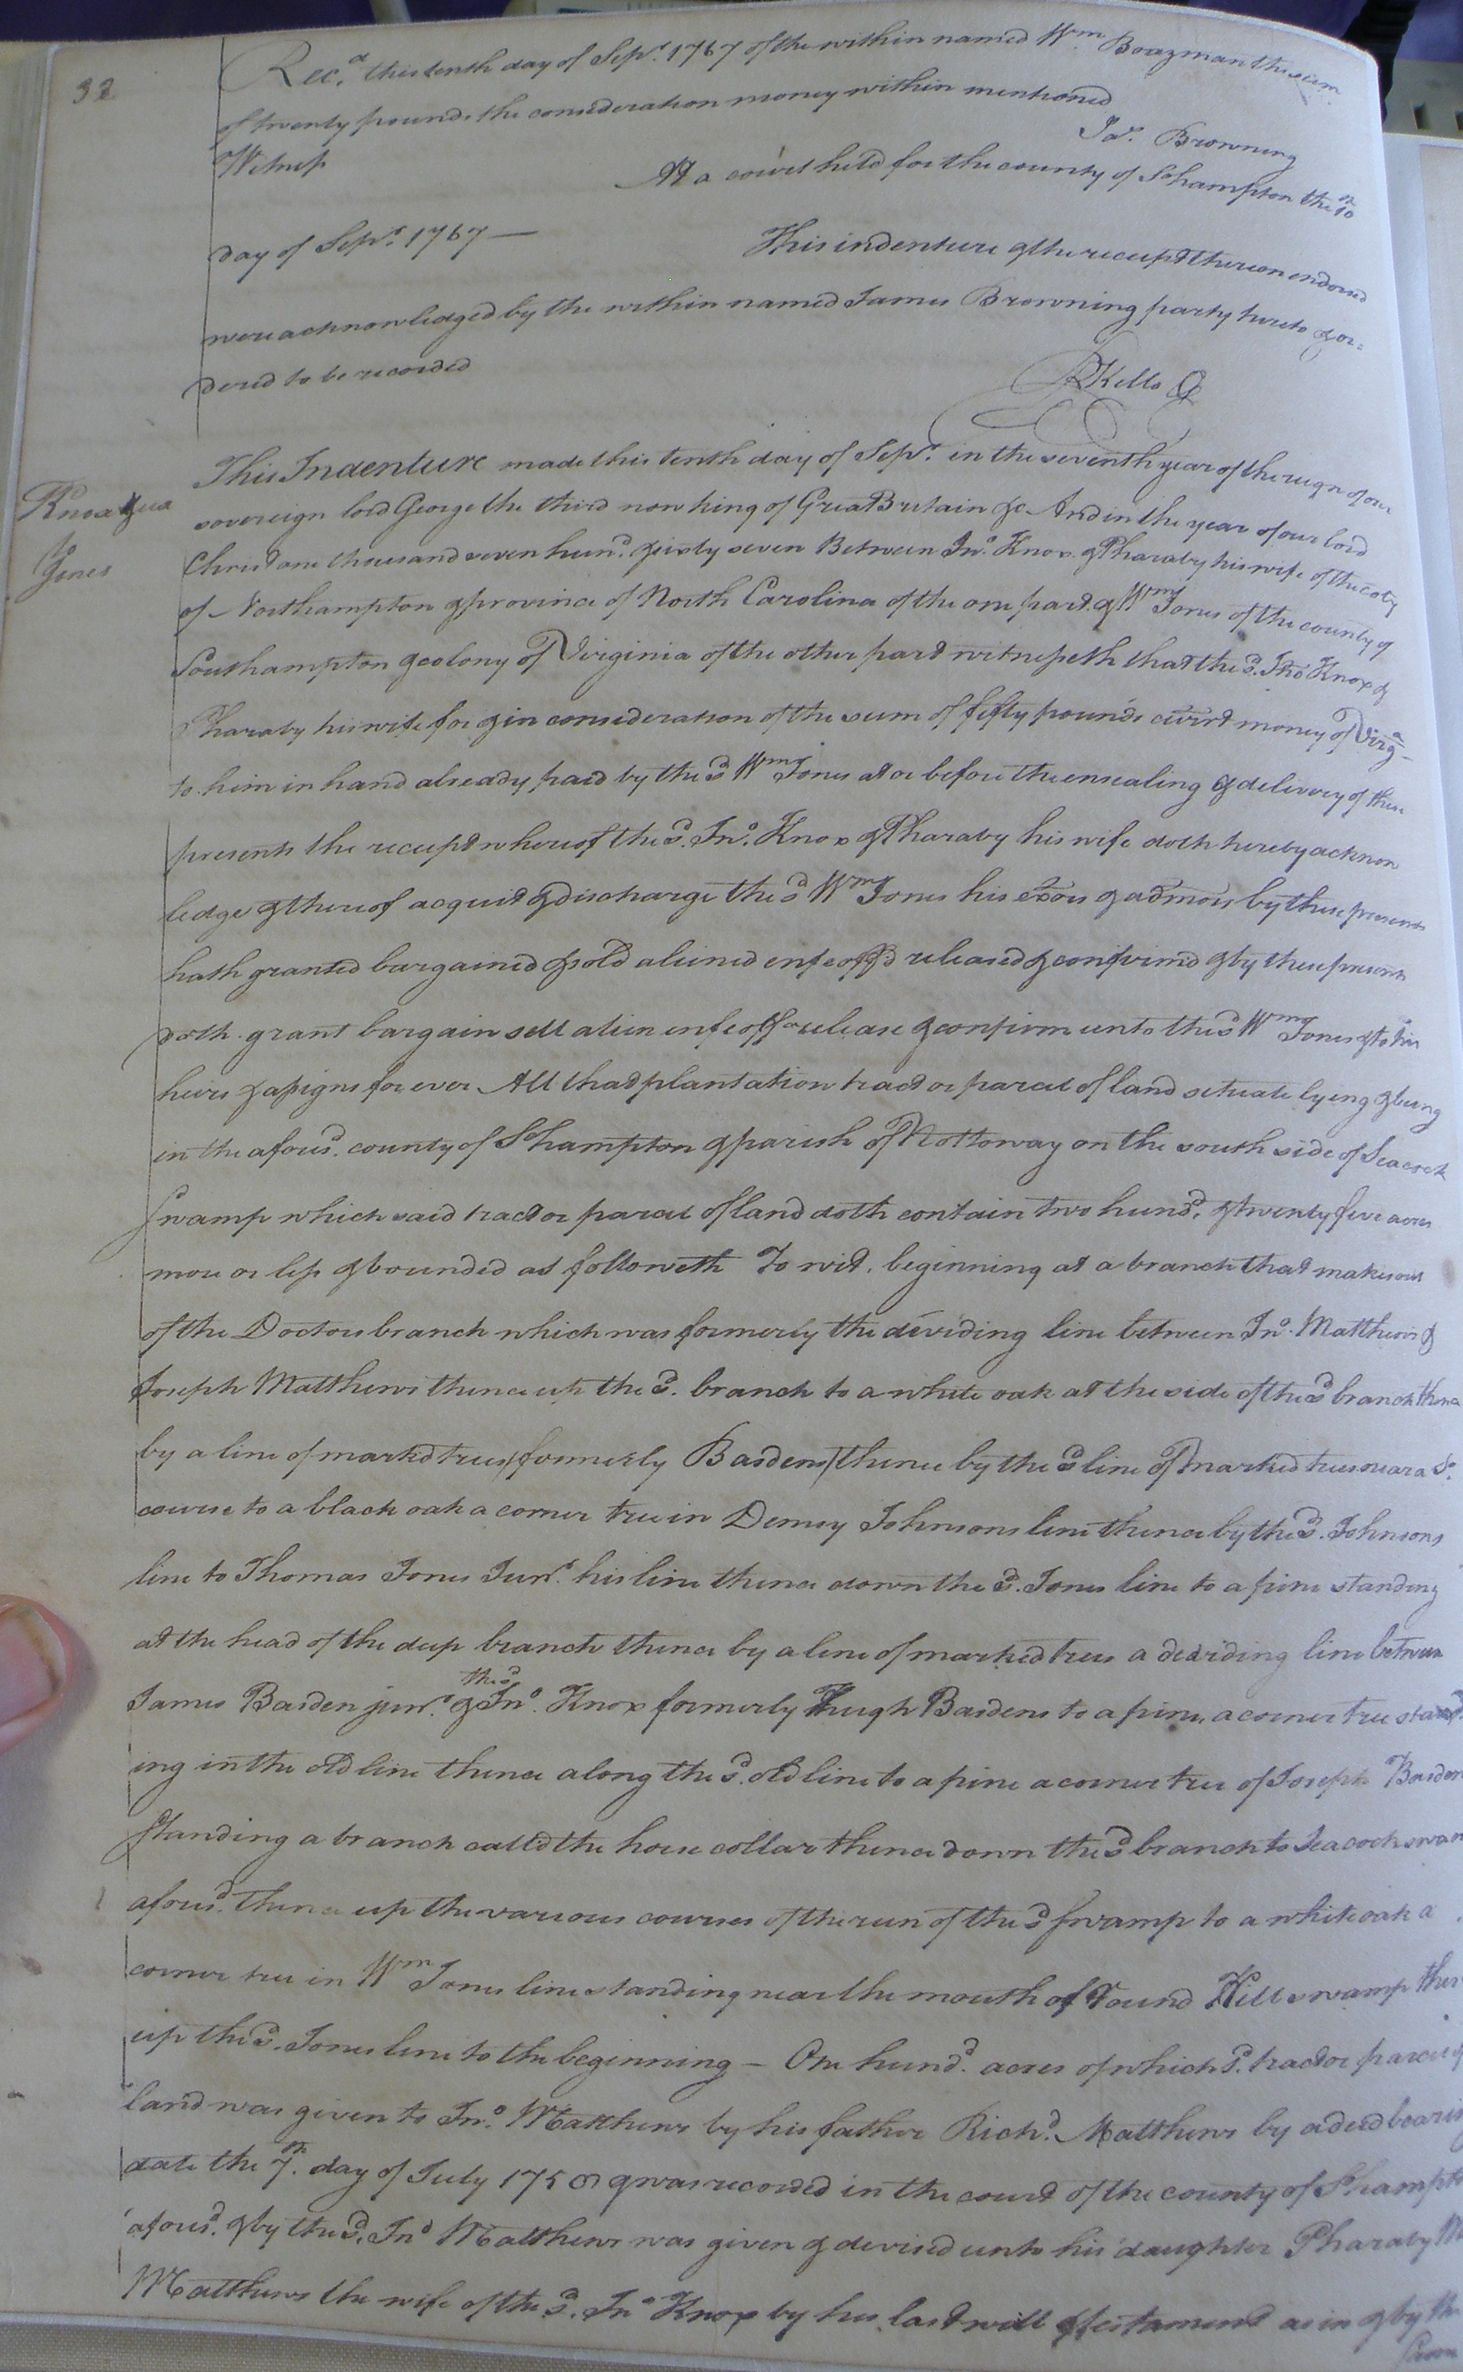 32
Rec.d this tenth day of Sep.r 1767 of the within named Wm Boazman the sum
of twenty pounds the consideration money within mentioned
Jas. Browning
Witness
At a court held for the county of Shampton the 10
day of Sep.r 1767 —
This indenture & the receipt thereon endorsed
were acknowledged by the within named James Browning party hereto & or=
dered to be recorded
RKello
This Indenture made this tenth day of Sep.r in the seventh year of the reign of our
Knox & ux
to
Jones
sovereign lord George the third now king of Great Britain &c And in the year of our lord
Christ one thousand seven hund.d & sixty seven Between Jno. Knox & Pharaby his wife of the coty
of Northampton & province of North Carolina of the one part & Wm Jones of the county of
Southampton & colony of Virginia of the other part witnesseth that the sd. Jno Knox &
Pharaby his wife for & in consideration of the sum of fifty pounds curr't money of Virga
to him in hand already paid by the sd Wm Jones at or before the ensealing & delivery of these
presents the receipt whereof the sd. Jno. Knox & Pharaby his wife doth hereby acknow
ledge & thereof acquit & discharge the sd Wm Jones his exors & admors by these presents
hath granted bargained & sold aliened enfeoff'd released & confirmed & by these presents
doth grant bargain sell alien enfeoff release & confirm unto the sd Wm Jones & to his
heirs & assigns for ever All that plantation tract or parcel of land situate lying & being
in the afores.d county of Shampton & parish of Nottoway on the south side of Seacock
swamp which said tract or parcel of land doth contain two hund.d & twenty five acres
more or less & bounded as followeth To wit, beginning at a branch that makes out
of the Doctors branch which was formerly the dividing line between Jno. Matthews &
Joseph Matthews thence up the sd. branch to a white oak at the side of the sd branch thence
by a line of marked trees (formerly Bardens) thence by the sd line of marked trees near a So.
course to a black oak a corner tree in Demsy Johnsons line thence by the sd. Johnsons
line to Thomas Jones Junr. his line thence down the sd. Jones line to a pine standing
at the head of the deep branch thence by a line of marked trees a dividing line between
James Barden junr. & the sd Jno. Knox formerly Hugh Bardens to a pine, a corner tree stand
ing in the old line thence along the sd. old line to a pine a corner tree of Joseph Barden
standing a branch called the horse collar thence down the sd branch to Seacock swam
afores.d thence up the various courses of the run of the sd swamp to a white oak a
corner tree in Wm Jones line standing near the mouth of round Hill swamp then
up the sd. Jones line to the beginning — One hund.d acres of which sd. tract or parcel of
land was given to Jno. Matthews by his father Rich.d Matthews by a deed bearing
date the 7. day of July 1750 & was recorded in the court of the county of Shampt
afores.d & by the sd. Jno Matthews was given & devised unto his daughter Pharaby
Matthews the wife of the sd. Jno Knox by his last will & testament as in & by the